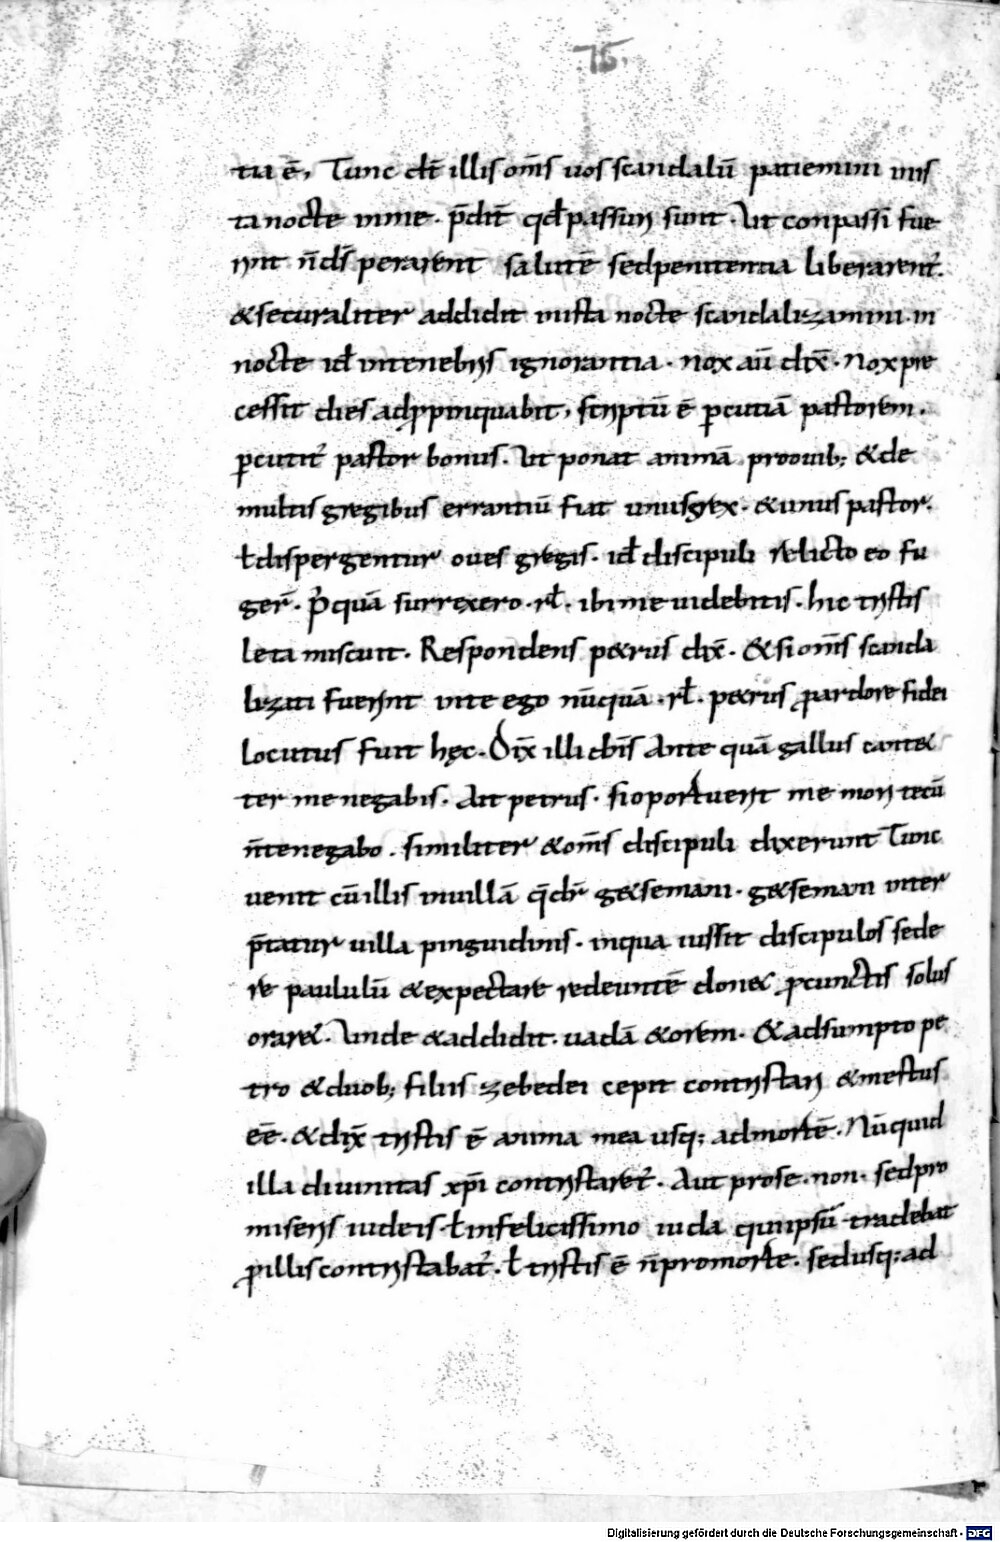 75.
tia ē, Tunc dt̄ illis om̄s uos scandalū patiemini inis
ta nocte inme. p̄dit̄ qđ passuri sunt. Ut conpassi fue
rint n̄ dsperarent salutē sed penitentia liberarent̄.
& securaliter addidit inista nocte scandalizamini. in
nocte id intenebris ignorantia. nox aū dix̄. Nox pre
cessit dies adp̱pinquabit, scriptū ē ꝑcutiā pastorem.
ꝑcutit̄ pastor bonus. Ut ponat animā pro ouib; & de
multis gregibus errantiū fiat unus grex. & unus pastor.
ł dispergentur oues gregis. id discipuli relicto eo fu
ger̄. P̄ quā surrexero. rł. ibi me uidebitis. hic tristis
leta miscuit. Respondens p&rus dix̄. & si om̄s scanda
lizati fuerint inte ego nūcquā. rł. p&rus p̱ ardore fidei
locutus fuit hęc. Dix̄ illi dn̄s Ante quā gallus cant&
ter me negabis. Ait petrus. si oportuerit me mori tecū
n̄ te negabo. similiter & om̄s discipuli dixerunt Tunc
uenit cū illis inuillā q̄ dr̄ g&semani. g&semani inter
p̄tatur uilla pinguidinis. inqua iussit discipulos sede
re paululū & expectare redeuntē donec p̱cunctis solus
orar&. Unde & addidit. uadā & orem. & adsumpto pe
tro & duob; filiis zebedei cepit contristari & mestus
eē. & dix̄ tristis ē anima mea usq; admortē. Nūquid
illa diuinitas xp̄i contristaret̄. Aut pro se. non. sed pro
miseris iudeis. ł infelicissimo iuda qui ipsū tradebat
p̱ illis contristabat̄. ł tristis ē n̄ promorte. sed usq; ad
Digitalisierung gefördert durch die Deutsche Forschungsgemeinschaft - DFG